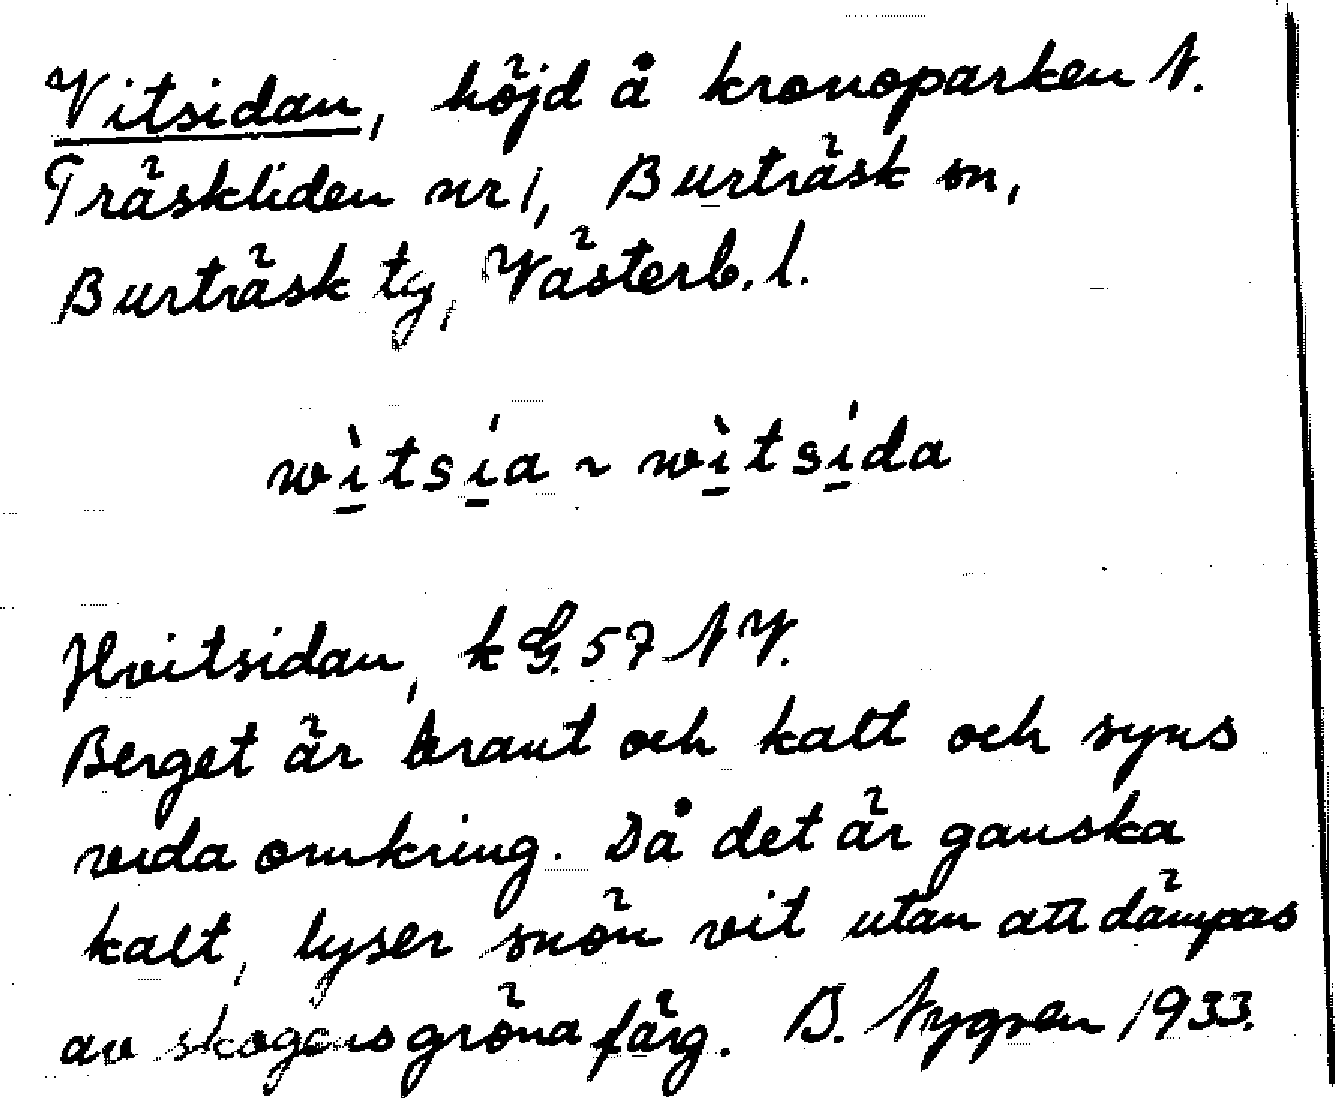 Vitsidan, höjd å kronoparken N.
Träskliden nr 1, Burträsk sn,
Burträsk tg, Västerb. l.
wì̱tsí̱a ~ wì̱tsí̱da
Hvitsidan, k G. 57 NV.
Berget är brant och kalt och syns
vida omkring. Då det är ganska
kalt, lyser snön vit utan att dämpas
av skogens gröna färg. B. Nygren 1933.